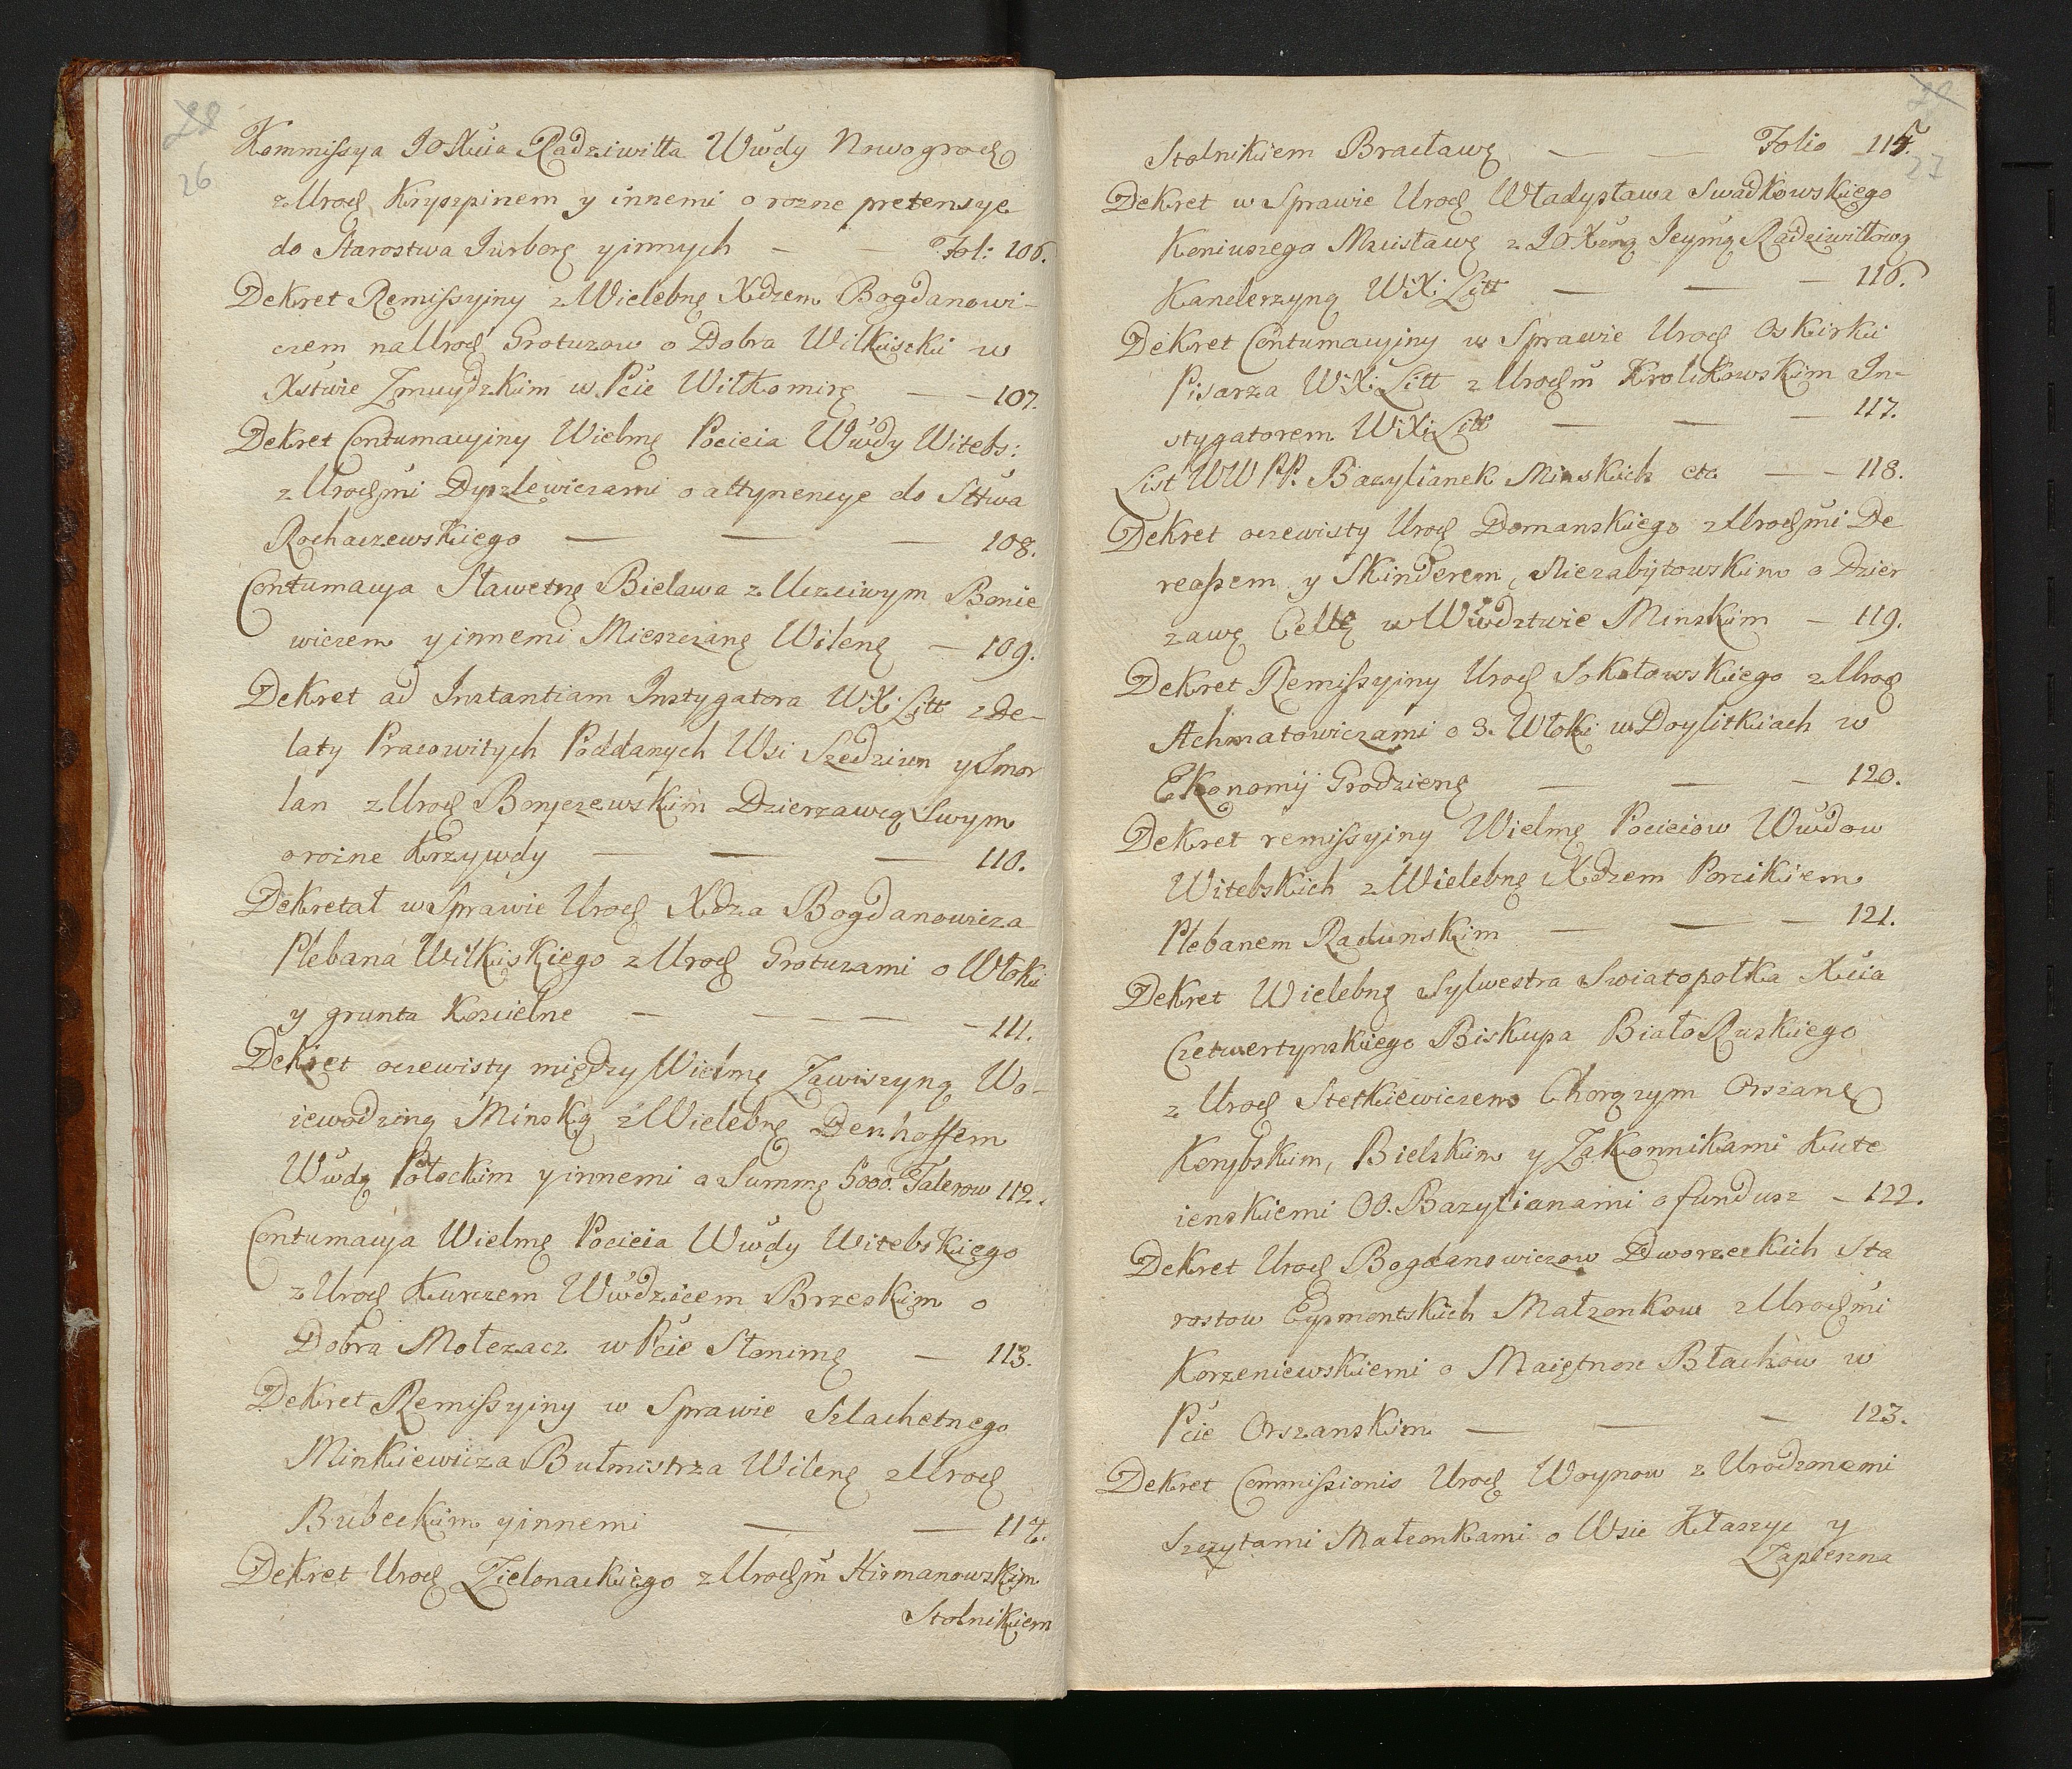 28
26
Kommissya JO Xcia Radziwiłła Wwdy Nowogrod
z Urod Kryszpinem y innemi o rozne pretensye
do Starostwa Jurborę y innych — — Fol: 106.
Dekret Remissyiny z Wielebnę Xdzem Bogdanowi-
czem na Urod Grotuzow o Dobra Wilkiszki w
Xstwie Zmuydzkim w Pcie Wiłkomirę — — 107.
Dekret Contumacyiny Wielmę Pocieia Wwdy Witebs:
z Urodzmi Dyszlewiczami o attynencye do Sttwa
Rochaczewskiego — — — 108.
Contumacya Sławetnę Bielawa z Uczciwym Bonie
wiczem y innemi Mieszczanę Wilenę — 109.
Dekret ad Instantiam Instygatora WX Litt z De-
laty Pracowitych Poddanych Wsi Szedziun y Smor
lan z Urod Boryczewskim Dzierzawcą Swym
o rozne Krzywdy — — — 110.
Dekretał w Sprawie Urod Xdza Bogdanowicza
Plebana Wilkiskiego z Urod Grotuzami o Włoki
y grunta Koscielne — — — — — 111.
Dekret oczewisty między Wielmę Zawiszyną Wo-
iewodziną Minską z Wielebnę Denhoffem
Wwdą Połockim y innemi o Summę 5000. Talerow 112.
Contumacya Wielmę Pocieia Wwdy Witebskiego
z Urod Kurczem Wwdzicem Brzeskim o
Dobra Mołczacz w Pcie Słonimę — 113.
Dekret Remissyiny w Sprawie Szlachetnego
Minkiewicza Bułmistrza Wilenę z Urod
Bubeckim y innemi — — 114.
Dekret Urod Zielonackiego z Urodzm Hirmanowskim
Stolnikiem
29
27
Stolnikiem Bracławę — — Folio 115.
Dekret w Sprawie Urod Władysława Swadkowskiego
Koniuszego Mscisławę z JO Xźną Jeymą Radziwiłłową
Kanclerzyną WX Litt — — — 116.
Dekret Contumacyiny w Sprawie Urod Oskirki
Pisarza WX Litt z Urodzm Krolikowskim In-
stygatorem WX Litt — — — 117.
List WW PP. Bazylianek Minskich etc — — 118.
Dekret oczewisty Urod Domanskiego z Urodzmi De
reassem, y Skinderem, Niezabytowskim o Dzier
zawę Cellę w Wwdztwie Minskim — 119.
Dekret Remissyiny Urod Sokołowskiego z Urod
Achmatowiczami o 3. Włoki w Doylitkiach w
Ekonomij Grodzienę — — — 120.
Dekret remissyiny Wielmę Pocieiow Wwdow
Witebskich z Wielebnę Xdzem Porzikiem
Plebanem Radunskim — — — 121.
Dekret Wielebnę Sylwestra Swiatopołka Xcia
Czetwertynskiego Biskupa BiałoRuskiego
z Urod Stetkiewiczem Chorązym Orszanę
Korybskim, Bielskim y Zakonnikami Kute
ienskiemi OO. Bazylianami o fundusz — 122.
Dekret Urod Bogdanowiczow Dworzeckich Sta
rostow Eypmontskich Małzonkow z Urodzmi
Korzeniewskiemi o Maiętnosc Błachow w
Pcie Orszanskim — — — 123.
Dekret Commissionis Urod Woynow z Urodzonemi
Szczytami Małzonkami o Wsie Kłaszyc y
Zaplenna